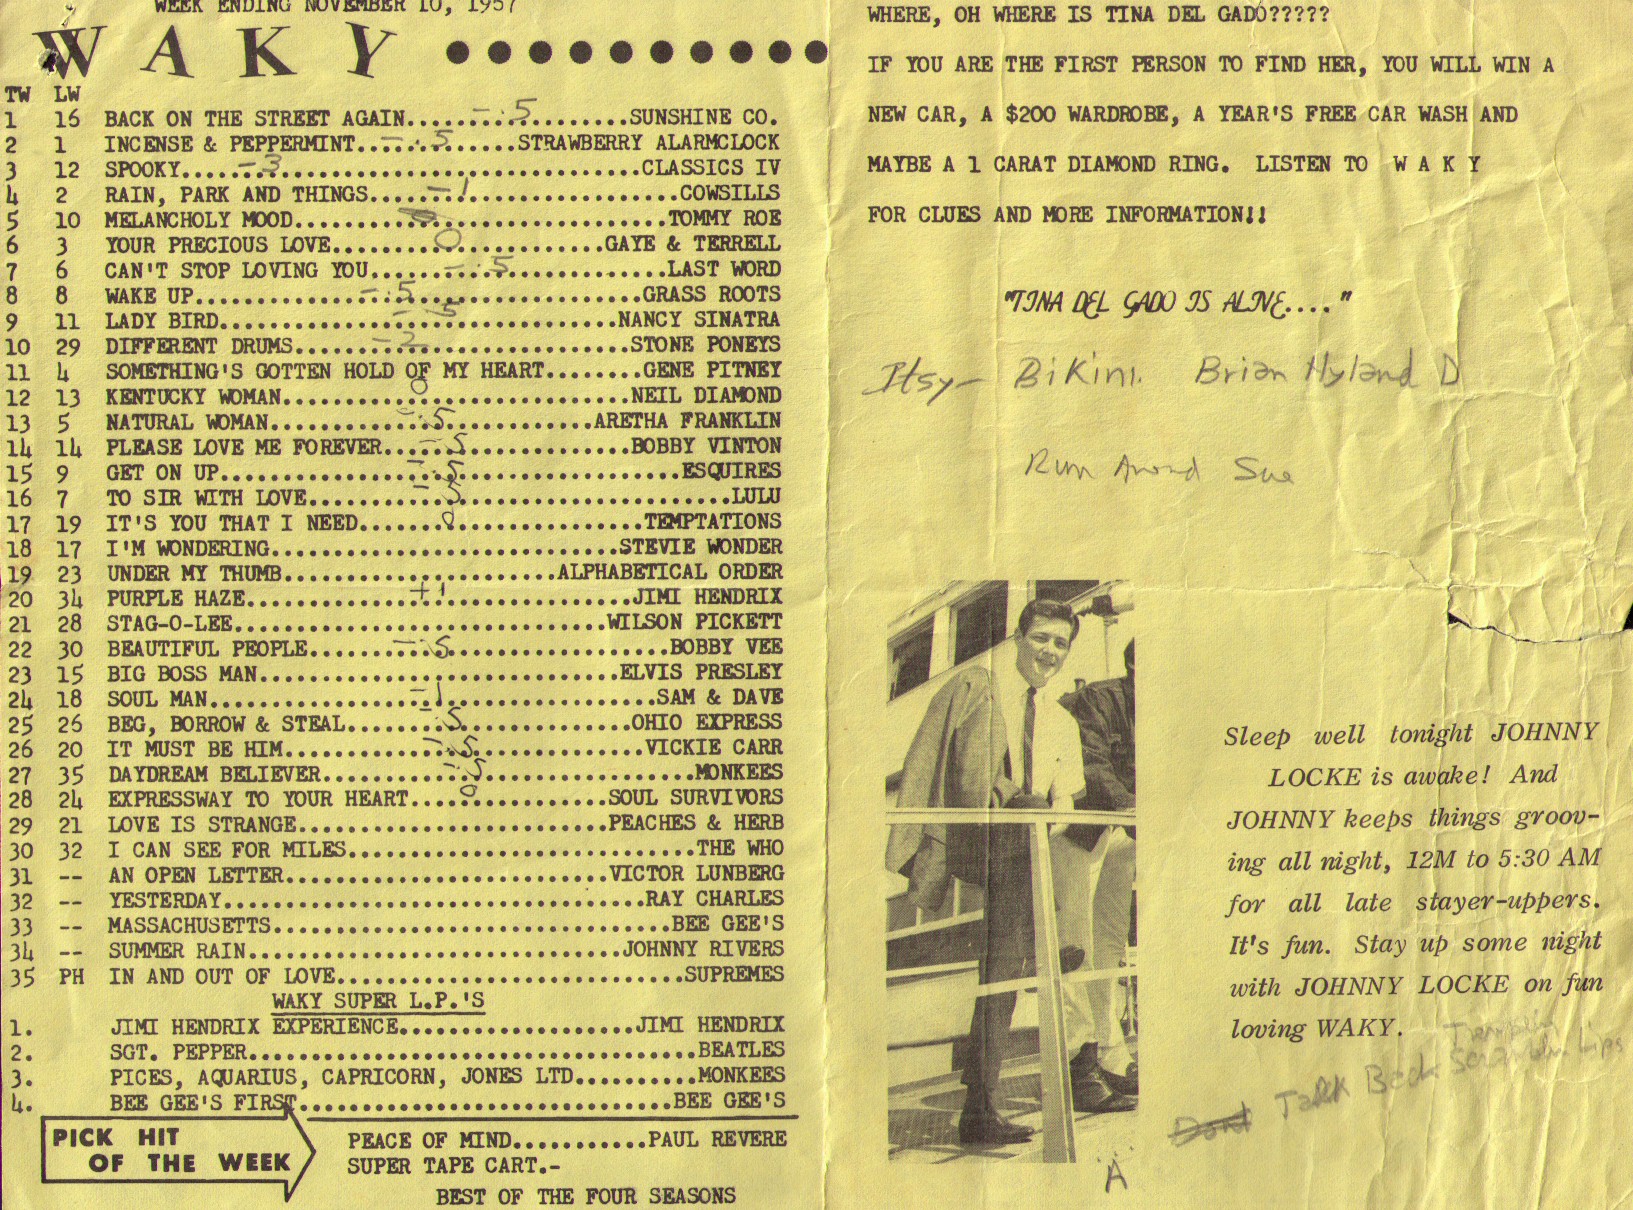 WEEK ENDING NOVEMBER 10, 1967
WAKY
TW LW
1 16 BACK ON THE STREET AGAIN..........SUNSHINE CO.
2 1 INCENSE & PEPPERMINT..........STRAWBERRY ALARMCLOCK
3 12 SPOOKY..........CLASSICS IV
4 2 RAIN, PARK AND THINGS..........COWSILLS
5 10 MELANCHOLY MOOD..........TOMMY ROE
6 3 YOUR PRECIOUS LOVE..........GAYE & TERRELL
7 6 CAN'T STOP LOVING YOU..........LAST WORD
8 8 WAKE UP..........GRASS ROOTS
9 11 LADY BIRD..........NANCY SINATRA
10 29 DIFFERENT DRUMS..........STONE PONEYS
11 4 SOMETHING'S GOTTEN HOLD OF MY HEART........GENE PITNEY
12 13 KENTUCKY WOMAN..........NEIL DIAMOND
13 5 NATURAL WOMAN..........ARETHA FRANKLIN
14 14 PLEASE LOVE ME FOREVER..........BOBBY VINTON
15 9 GET ON UP..........ESQUIRES
16 7 TO SIR WITH LOVE..........LULU
17 19 IT'S YOU THAT I NEED..........TEMPTATIONS
18 17 I'M WONDERING..........STEVIE WONDER
19 23 UNDER MY THUMB..........ALPHABETICAL ORDER
20 34 PURPLE HAZE..........JIMI HENDRIX
21 28 STAG-O-LEE..........WILSON PICKETT
22 30 BEAUTIFUL PEOPLE..........BOBBY VEE
23 15 BIG BOSS MAN..........ELVIS PRESLEY
24 18 SOUL MAN..........SAM & DAVE
25 26 BEG, BORROW & STEAL..........OHIO EXPRESS
26 20 IT MUST BE HIM..........VICKIE CARR
27 35 DAYDREAM BELIEVER..........MONKEES
28 24 EXPRESSWAY TO YOUR HEART..........SOUL SURVIVORS
29 21 LOVE IS STRANGE..........PEACHES & HERB
30 32 I CAN SEE FOR MILES..........THE WHO
31 -- AN OPEN LETTER..........VICTOR LUNBERG
32 -- YESTERDAY..........RAY CHARLES
33 -- MASSACHUSETTS..........BEE GEE'S
34 -- SUMMER RAIN..........JOHNNY RIVERS
35 PH IN AND OUT OF LOVE..........SUPREMES
WAKY SUPER L.P.'S
1. JIMI HENDRIX EXPERIENCE..........JIMI HENDRIX
2. SGT. PEPPER..........BEATLES
3. PICES, AQUARIUS, CAPRICORN, JONES LTD..........MONKEES
4. BEE GEE'S FIRST..........BEE GEE'S
PICK HIT
OF THE WEEK
PEACE OF MIND...........PAUL REVERE
SUPER TAPE CART.-
BEST OF THE FOUR SEASONS
WHERE, OH WHERE IS TINA DEL GADO?????
IF YOU ARE THE FIRST PERSON TO FIND HER, YOU WILL WIN A
NEW CAR, A $200 WARDROBE, A YEAR'S FREE CAR WASH AND
MAYBE A 1 CARAT DIAMOND RING. LISTEN TO W A K Y
FOR CLUES AND MORE INFORMATION!!
"TINA DEL GADO IS ALIVE...."
Itsy- Bikini. Brian Hyland D
Run Around Sue
Sleep well tonight JOHNNY
LOCKE is awake! And
JOHNNY keeps things groov-
ing all night, 12M to 5:30 AM
for all late stayer-uppers.
It's fun. Stay up some night
with JOHNNY LOCKE on fun
loving WAKY.
Talk Back Lips
A